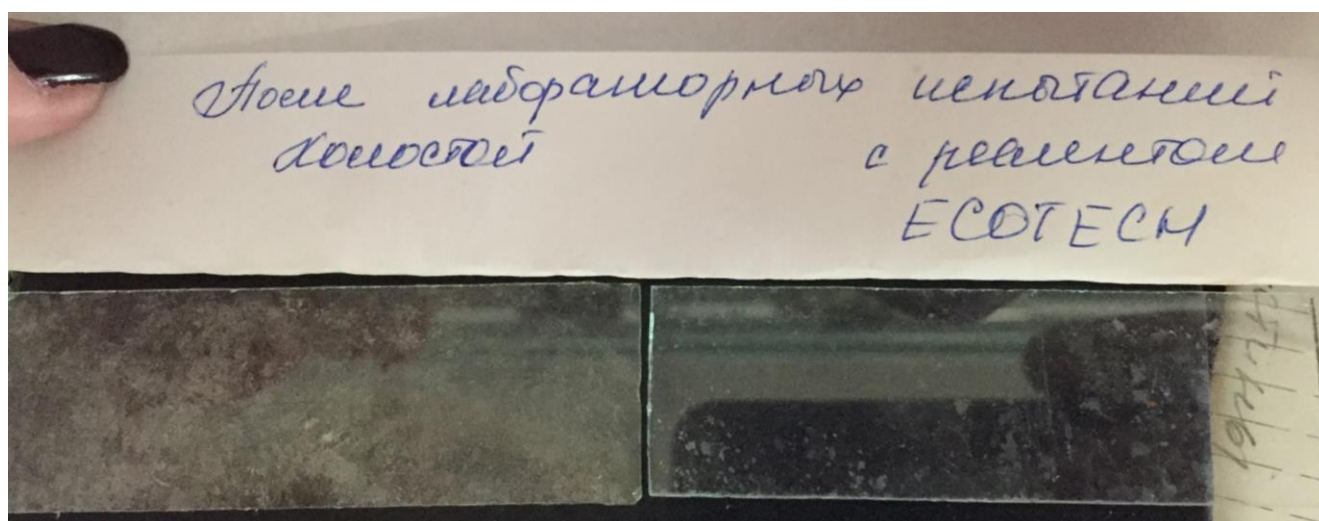 После лабораторных испытаний
Холостой с реагентом
ECOTECH